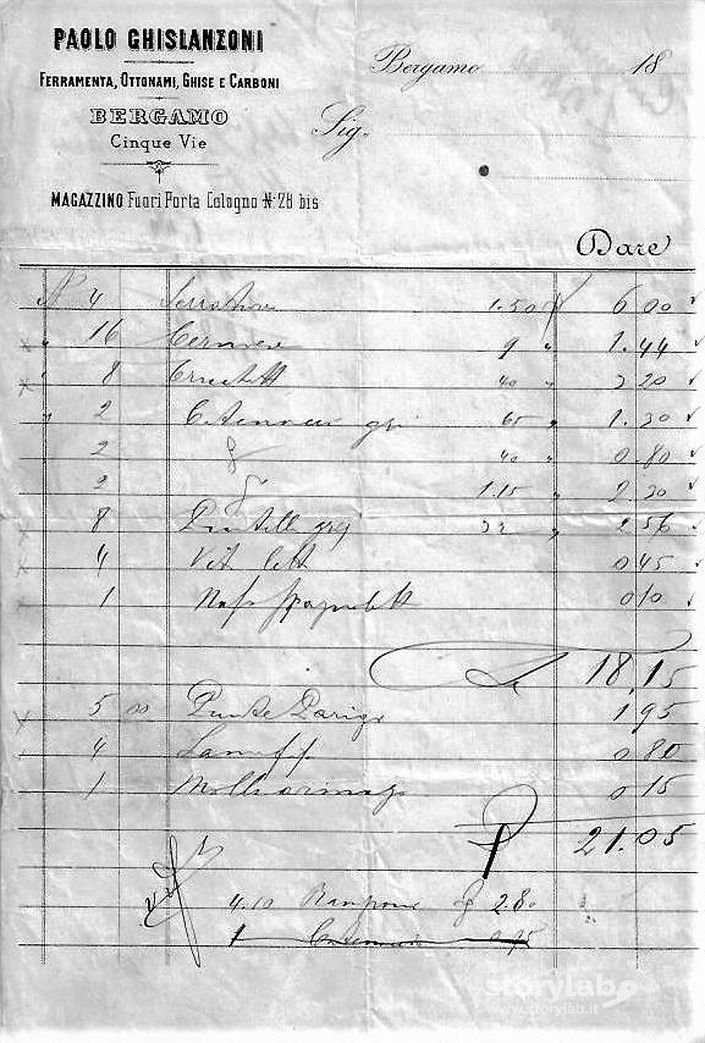 PAOLO GHISLANZONI
FERRAMENTA, OTTONAMI, GHISE E CARBONI
BERGAMO
Cinque Vie
MAGAZZINO Fuori Porta Cologno N. 28 bis
Bergamo 18
Sig.
Dare
N. 4 Serrature 1.50 6 00
16 Cerniere 9 " 1.44
8 40 " 3 20
2 65 " 1.30
2 40 " 0.80
2 1.15 " 2.30
8 32 " 2 56
4 Vit lett 0 45
1 0 10
18.15
5 Punte Parigi 1 95
4 0 80
1 0 15
21.05
4.10 2.80
1 0.95
storylab
www.storylab.it